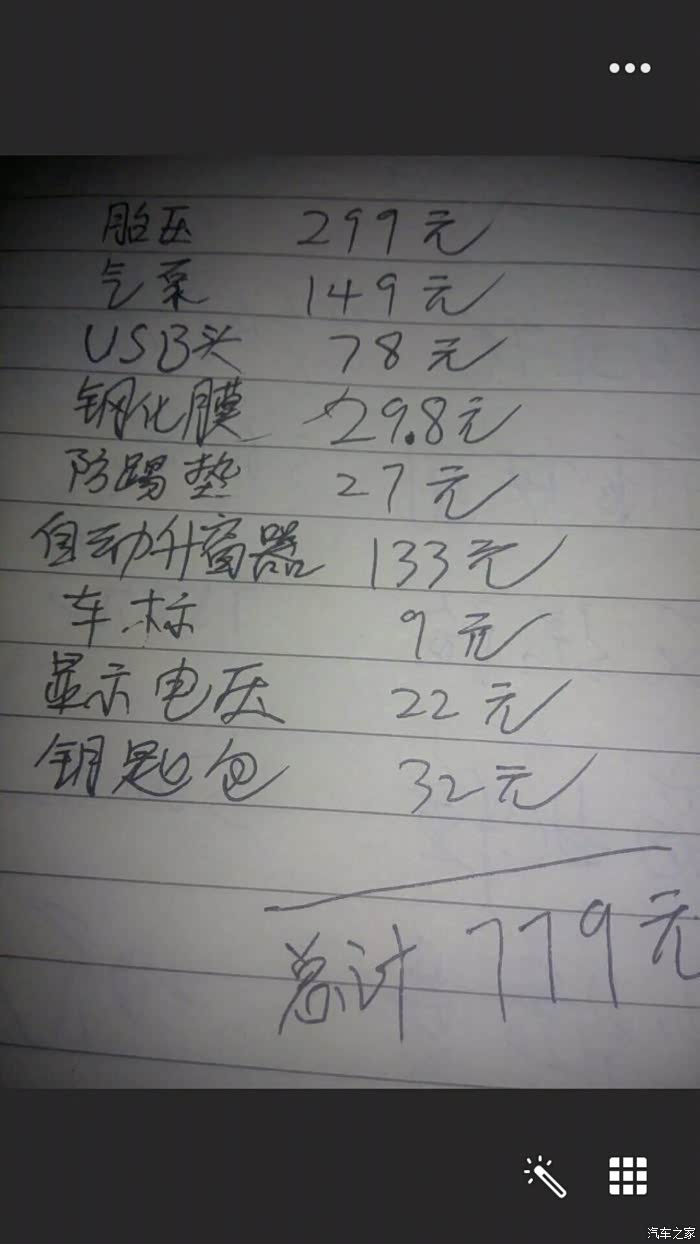 胎压 299元
气泵 149元
USB头 78元
钢化膜 29.8元
防踢垫 27元
自动升窗器 133元
车标 9元
显示电压 22元
钥匙包 32元
总计 779元
汽车之家